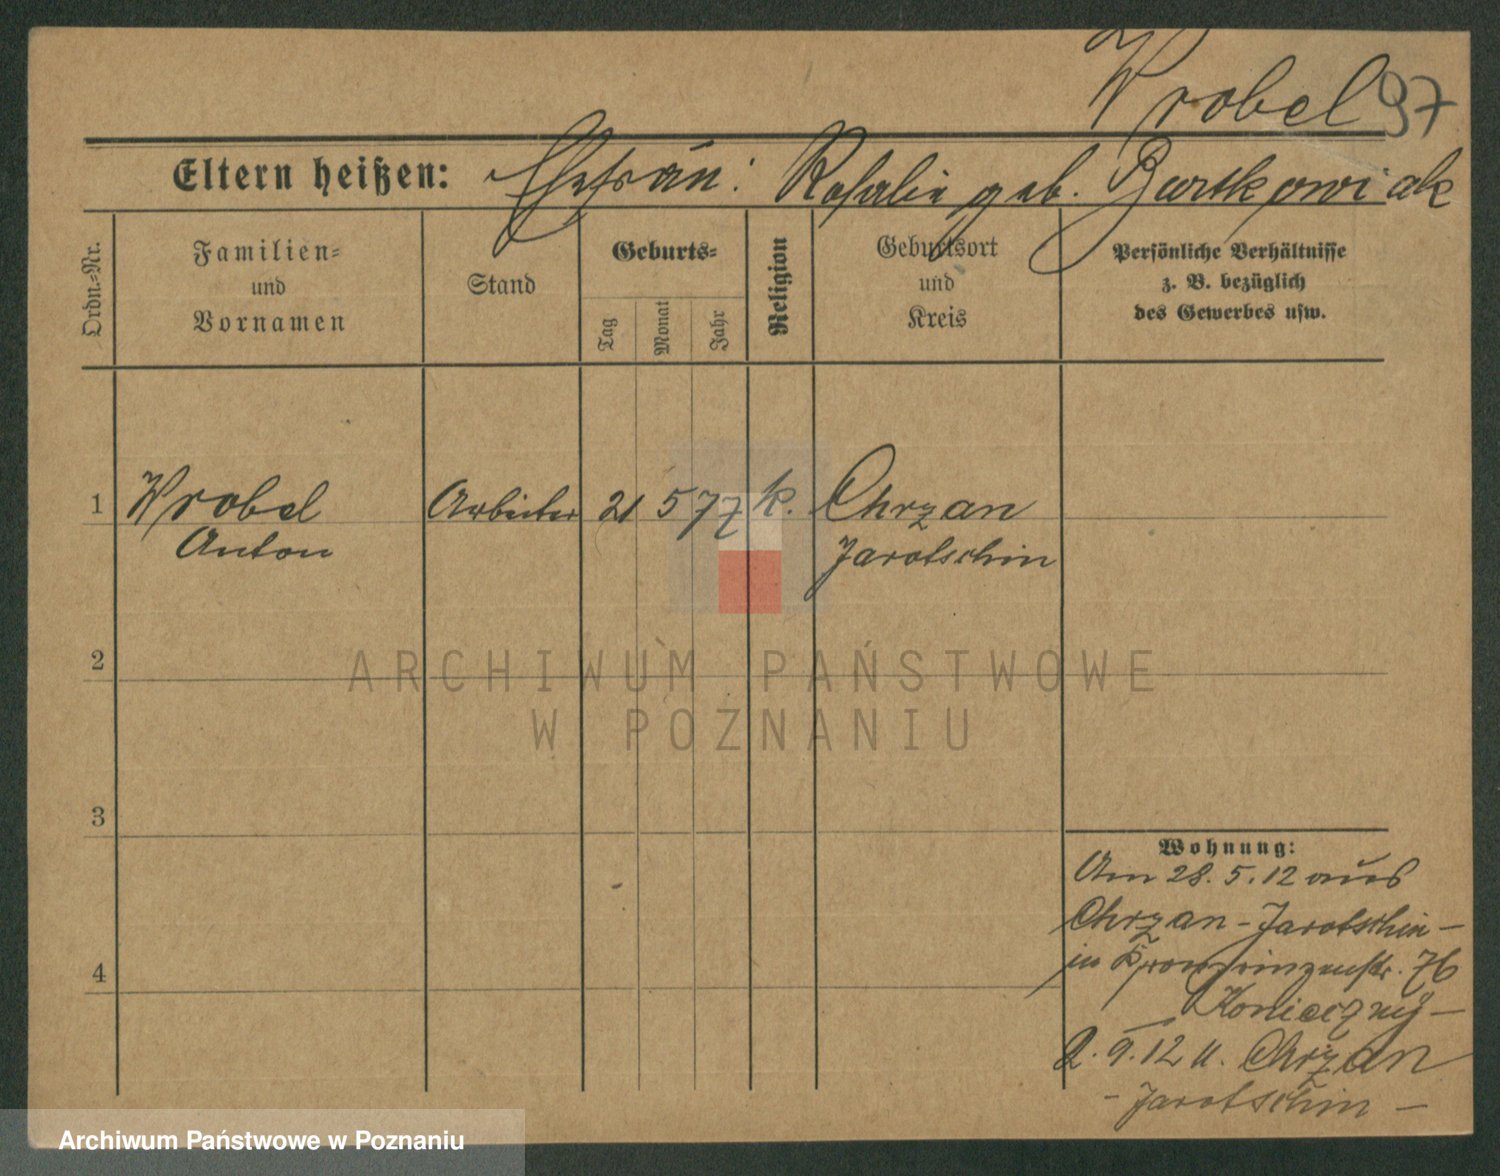 Wrobel 97
Eltern heißen: Ehefrau: Rosalie geb. Bartkowiak
Ordn.-Nr.
Familien-
und
Vornamen
Stand
Geburts-
Tag
Monat
Jahr
Religion
Geburtsort
und
Kreis
Persönliche Verhältnisse
z. B. bezüglich
des Gewerbes usw.
1 Wrobel Arbeiter 21 5 77 k. Chrzan
Anton Jarotschin
2
3
4
Wohnung:
Am 28. 5. 12 aus
Chrzan - Jarotschin -
in Kronprinzenstr. 76
Konieczny -
2. 9. 12 n. Chrzan
- Jarotschin -
ARCHIWUM PAŃSTWOWE
W POZNANIU
Archiwum Państwowe w Poznaniu